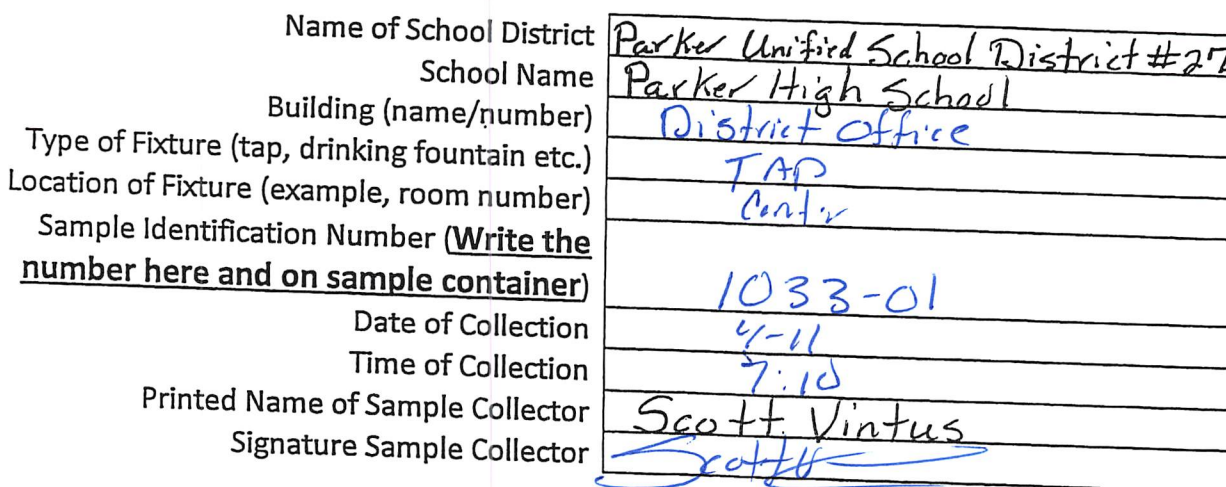 Name of School District Parker Unified School District #27
School Name Parker High School
Building (name/number) District Office
Type of Fixture (tap, drinking fountain etc.) TAP
Location of Fixture (example, room number)
Sample Identification Number (Write the
number here and on sample container) 1033-01
Date of Collection 4-11
Time of Collection 7:10
Printed Name of Sample Collector Scott Vintus
Signature Sample Collector Scott